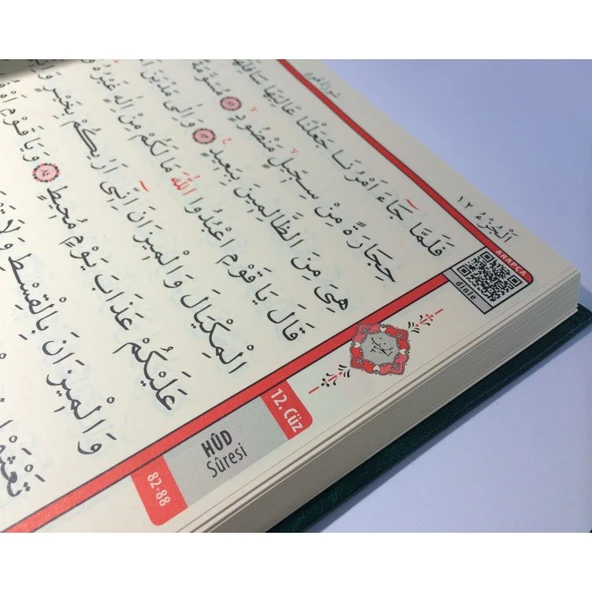 اَلْجُزْءُ ١٢
ARAPÇA
dinle
فَلَمَّا جَاءَ اَمْرُنَا جَعَلْنَا عَالِيَهَا سَافِلَهَا
حِجَارَةً مِنْ سِجِّيلٍ مَنْضُودٍ ٨٢ مُسَوَّمَةً
هِيَ مِنَ الظَّالِمِينَ بِبَعِيدٍ ٨٣ وَاِلٰى مَدْيَنَ
قَالَ يَا قَوْمِ اعْبُدُوا اللّٰهَ مَا لَكُمْ مِنْ اِلٰهٍ غَيْرُهُ
الْمِكْيَالَ وَالْمِيزَانَ اِنِّي اَرٰيكُمْ بِخَيْرٍ
عَلَيْكُمْ عَذَابَ يَوْمٍ مُحِيطٍ ٨٤ وَيَا قَوْمِ
وَالْمِيزَانَ بِالْقِسْطِ وَلَا
تَعْثَوْا
12. Cüz
HÛD
Sûresi
82-88